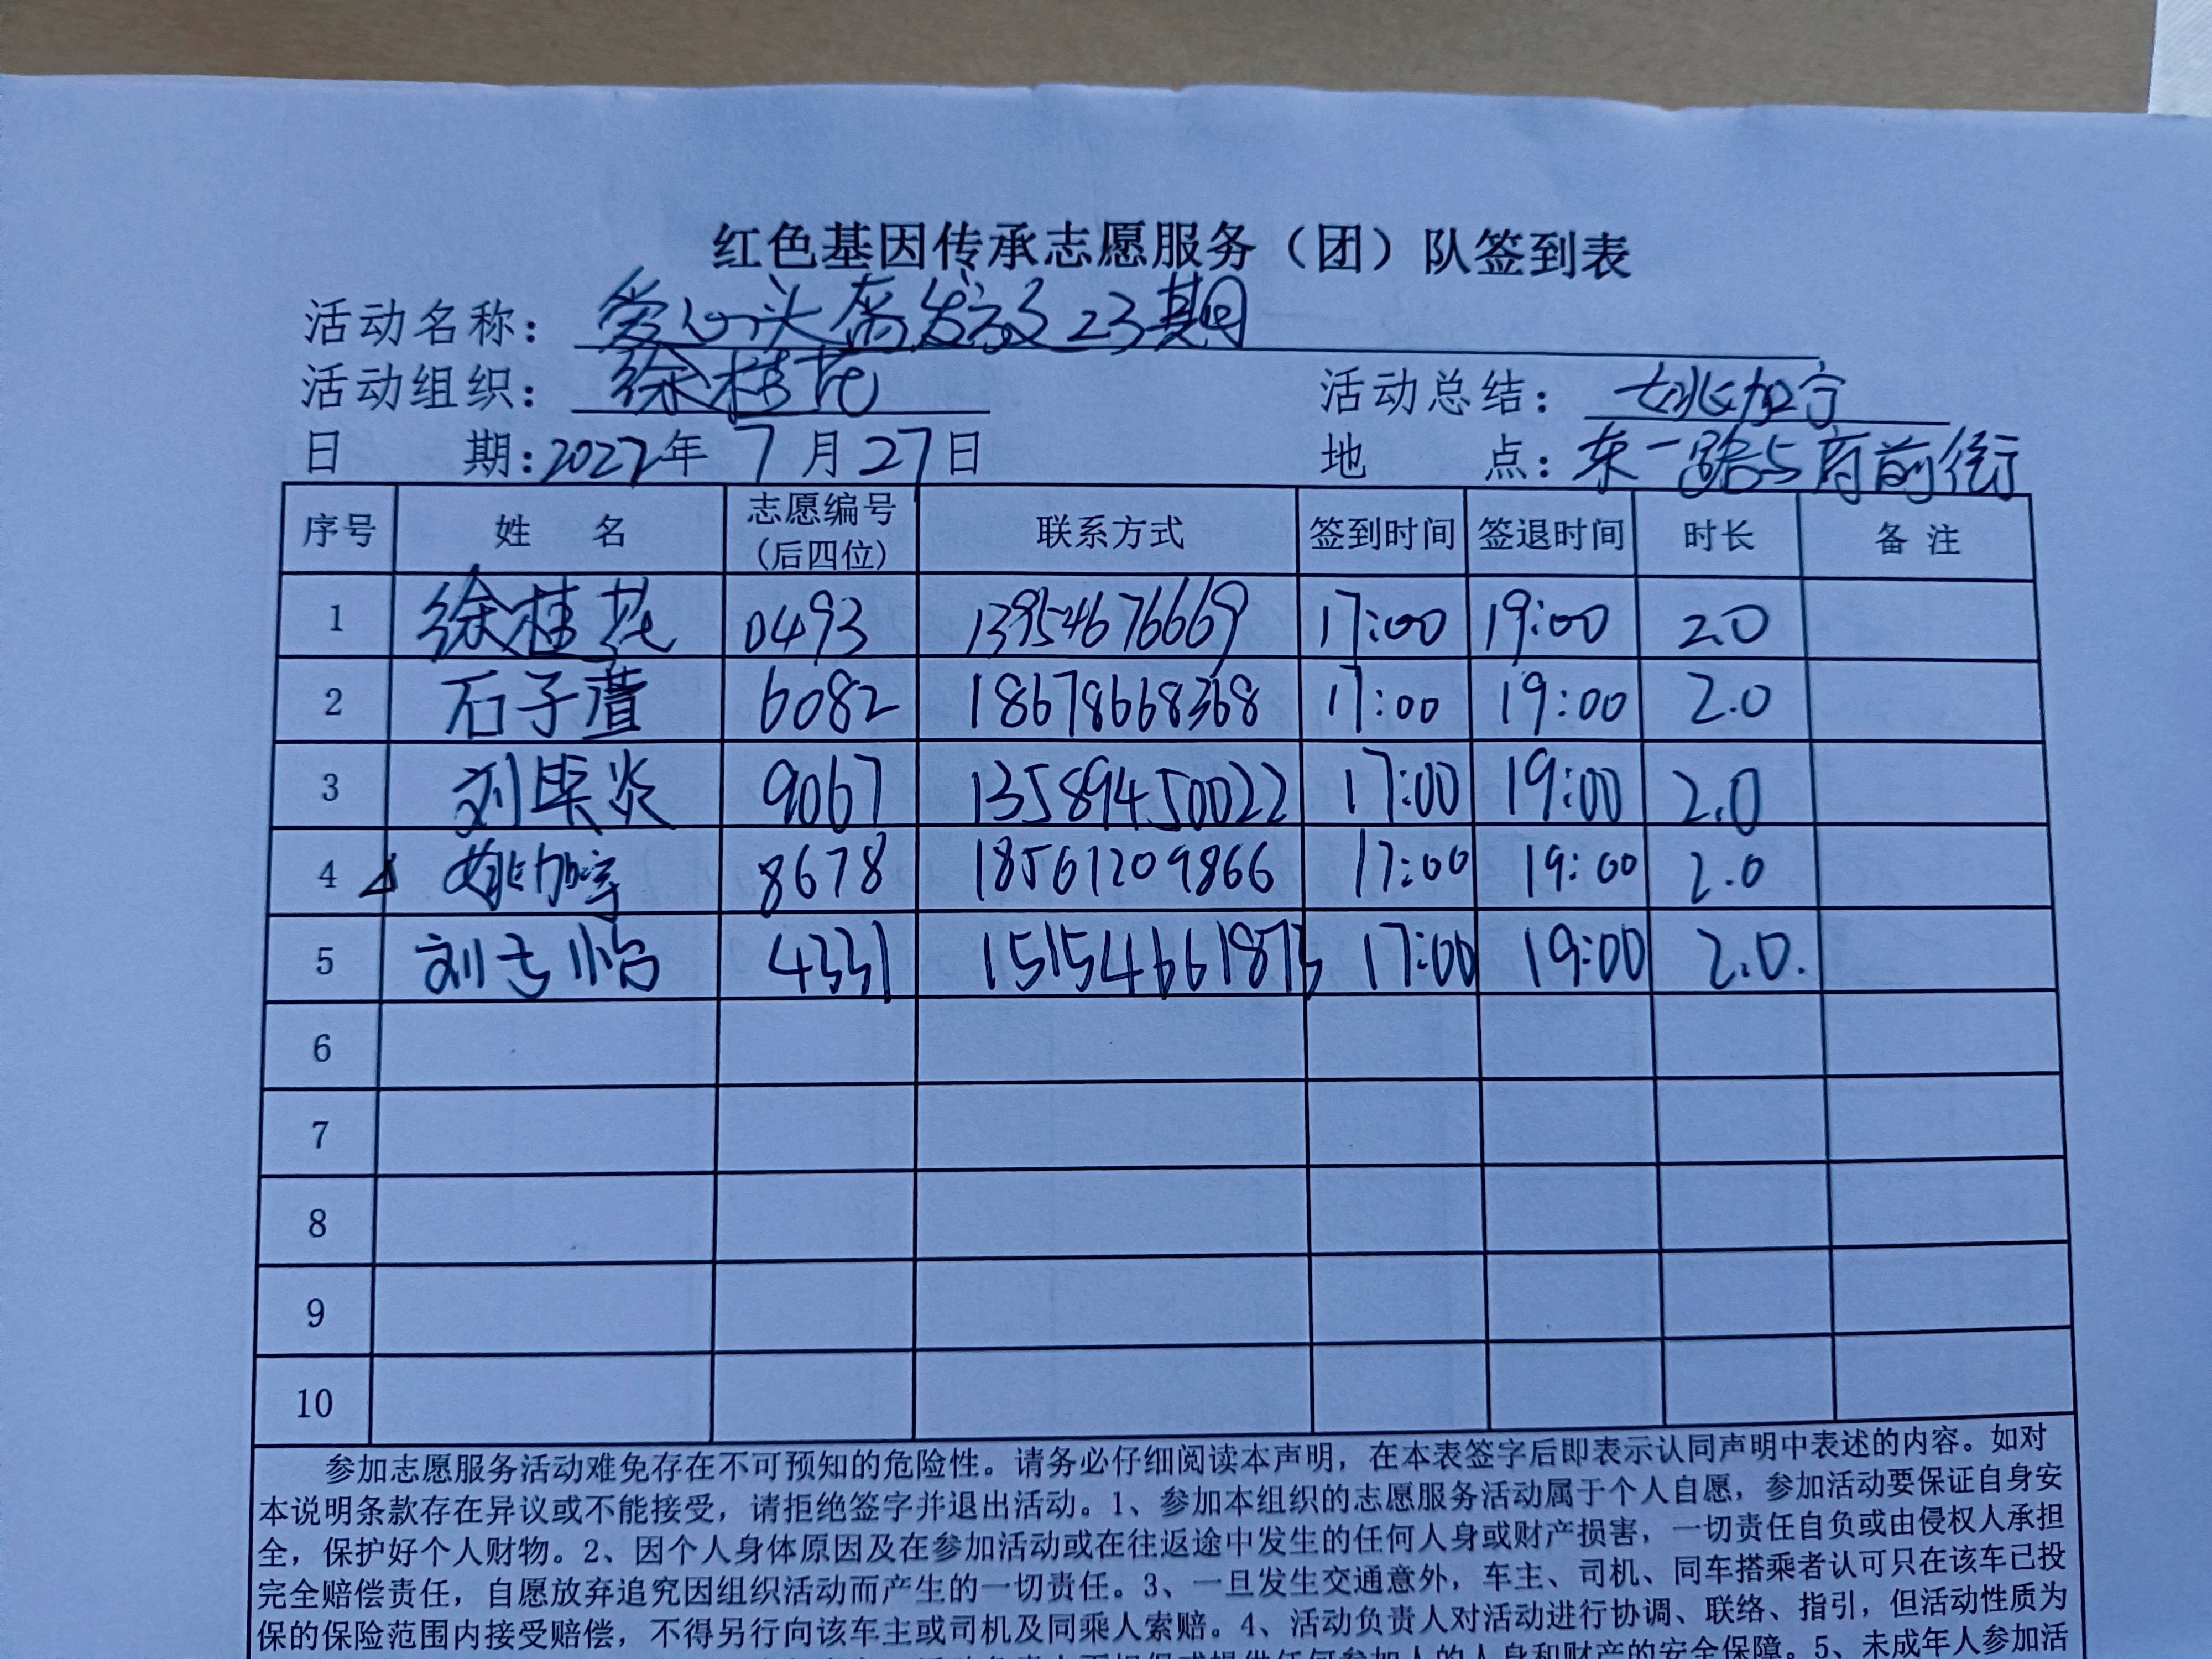 红色基因传承志愿服务（团）队签到表
活动名称：爱心头盔发放23期
活动组织：徐桂花 活动总结：姚加宁
日 期：2022年7月27日 地 点：东一路与府前街
序号 姓 名 志愿编号（后四位） 联系方式 签到时间 签退时间 时长 备 注
1 徐桂花 0493 13954676669 17:00 19:00 2.0
2 石子萱 6082 18678668368 17:00 19:00 2.0
3 刘 6 炎 9067 13589450022 17:00 19:00 2.0
4 姚加宁 8678 18561209866 17:00 19:00 2.0
5 刘 怡 4331 15154661873 17:00 19:00 2.0.
6
7
8
9
10
参加志愿服务活动难免存在不可预知的危险性。请务必仔细阅读本声明，在本表签字后即表示认同声明中表述的内容。如对
本说明条款存在异议或不能接受，请拒绝签字并退出活动。1、参加本组织的志愿服务活动属于个人自愿，参加活动要保证自身安
全，保护好个人财物。2、因个人身体原因及在参加活动或在往返途中发生的任何人身或财产损害，一切责任自负或由侵权人承担
完全赔偿责任，自愿放弃追究因组织活动而产生的一切责任。3、一旦发生交通意外，车主、司机、同车搭乘者认可只在该车已投
保的保险范围内接受赔偿，不得另行向该车主或司机及同乘人索赔。4、活动负责人对活动进行协调、联络、指引，但活动性质为
任何参加人的人身和财产的安全保障。5、未成年人参加活